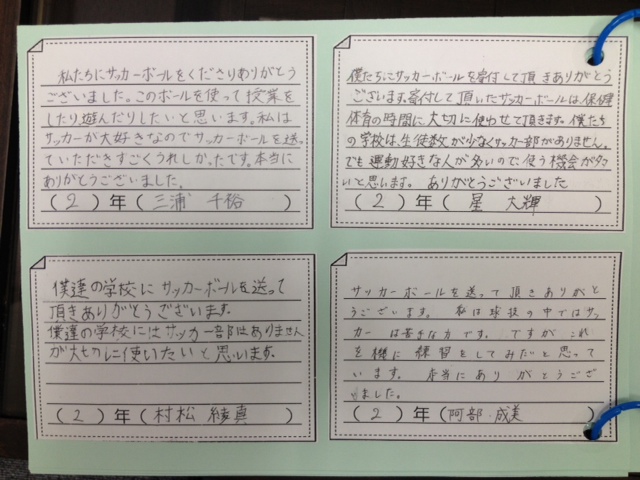 私たちにサッカーボールをくださりありがとう
ございました。このボールを使って授業を
したり遊んだりしたいと思います。私は
サッカーが大好きなのでサッカーボールを送っ
ていただきすごくうれしかったです。本当に
ありがとうございました。
(2)年(三浦 千裕)
僕たちにサッカーボールを寄付して頂きありがとう
ございます。寄付して頂いたサッカーボールは、保健
体育の時間に大切に使わせて頂きます。僕たち
の学校は、生徒数が少なくサッカー部がありません。
でも運動好きな人が多いので使う機会が多
いと思います。 ありがとうございました
(2)年(星 大輝)
僕達の学校にサッカーボールを送って
頂きありがとうございます。
僕達の学校にはサッカー部はありません
が大切に使いたいと思います。
(2)年(村松 綾真)
サッカーボールを送って頂きありがと
うございます。私は球技の中ではサッ
カーは苦手な方です。ですがこれ
を機に練習をしてみたいと思って
います。本当にありがとうござ
いました。
(2)年(阿部 成美)